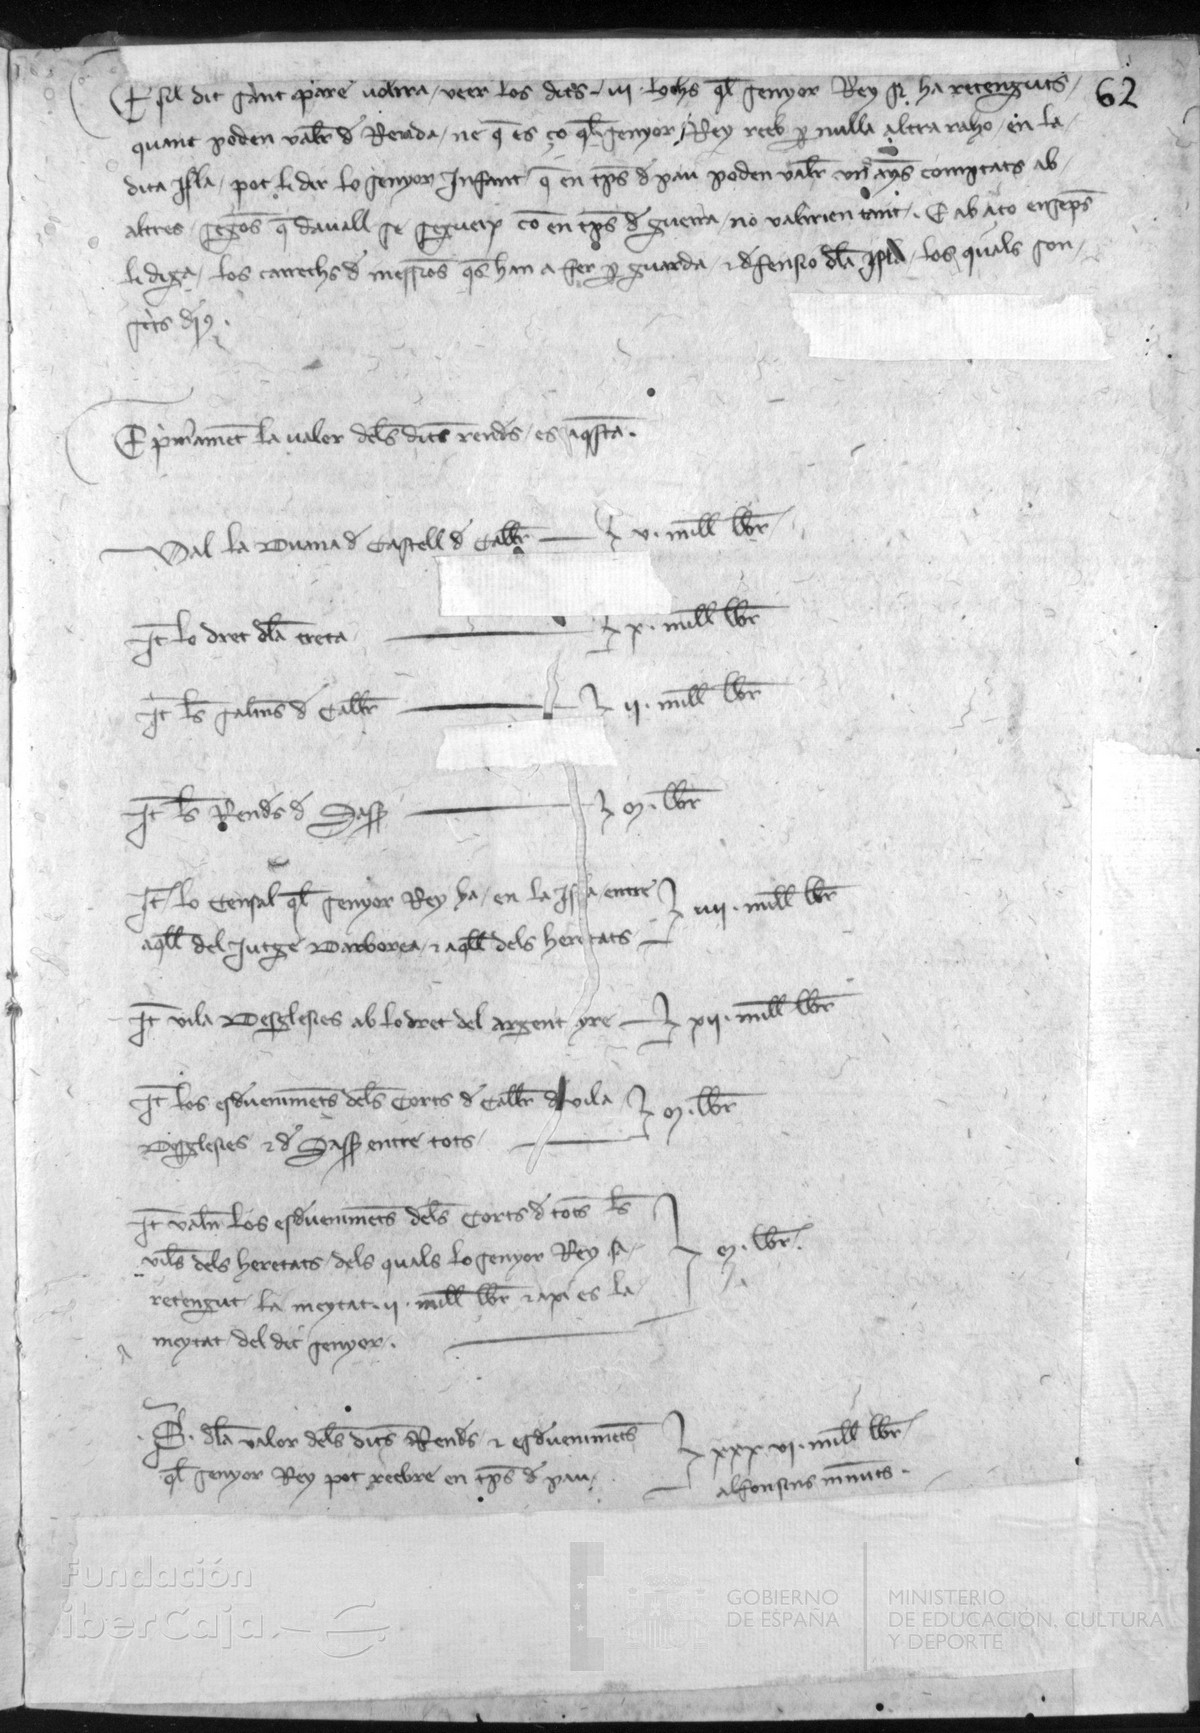 62
E sil dit sant pare volra / veer los dits · vii · lochs q̃l senyor Rey si ha retenguts /
quant poden valer d̃ Renda / ne q̃ es ço q̃l senyor / Rey reeb p nulla altra raho / en la /
dita Isla / pot li dir lo senyor Infant q̃ en tp̃s d̃ pau poden valer un ays comptats ab /
altres / segons q̃ davall se segueix co en tp̃s d̃ guerra / no valrien tant · E ab aço ensep̃s
li diga / los carrechs d̃ messios q̃s han a fer p guarda / ⁊ d̃fensio dl̃a Isla / los quals son /
E p̃mament la valor dels dits rendes / es aq̃sta ·
Val la Duana d̃ Castell d̃ Call̃r — v · mill lbr̃
It̃ lo dret dl̃a treta — x · mill lbr̃
It̃ ls̃ salins d̃ Call̃r — ii · mill lbr̃
It̃ ls̃ Rendes d̃ Sass̃ — m · lbr̃
It̃ lo Censal q̃l senyor Rey ha / en la Isla entre
aq̃ll del Jutge Darborea / ⁊ aq̃ll dels heretats — iiii · mill lbr̃
It̃ vila Desglesies ab lo dret del argent / — xii · mill lbr̃
It̃ los esdeveniments dels Corts d̃ Call̃r d̃ vila
Desglesies ⁊ d̃ Sass̃ entre tots / — m · lbr̃
It̃ valen los esdeveniments dels Corts d̃ tots ls̃
vil̃s dels heretats / dels quals lo senyor Rey sa /
retengut la meytat · ii · mill lbr̃ ⁊ axi es la
meytat del dit senyor · — m · lbr̃ ·
· S · dl̃a valor dels dits Rendes ⁊ esdeveniments
q̃l senyor Rey pot reebre en tp̃s d̃ pau / — xxxvi · mill lbr̃
alfonsins menuts ·
Fundación
iberCaja
GOBIERNO
DE ESPAÑA
MINISTERIO
DE EDUCACIÓN, CULTURA
Y DEPORTE